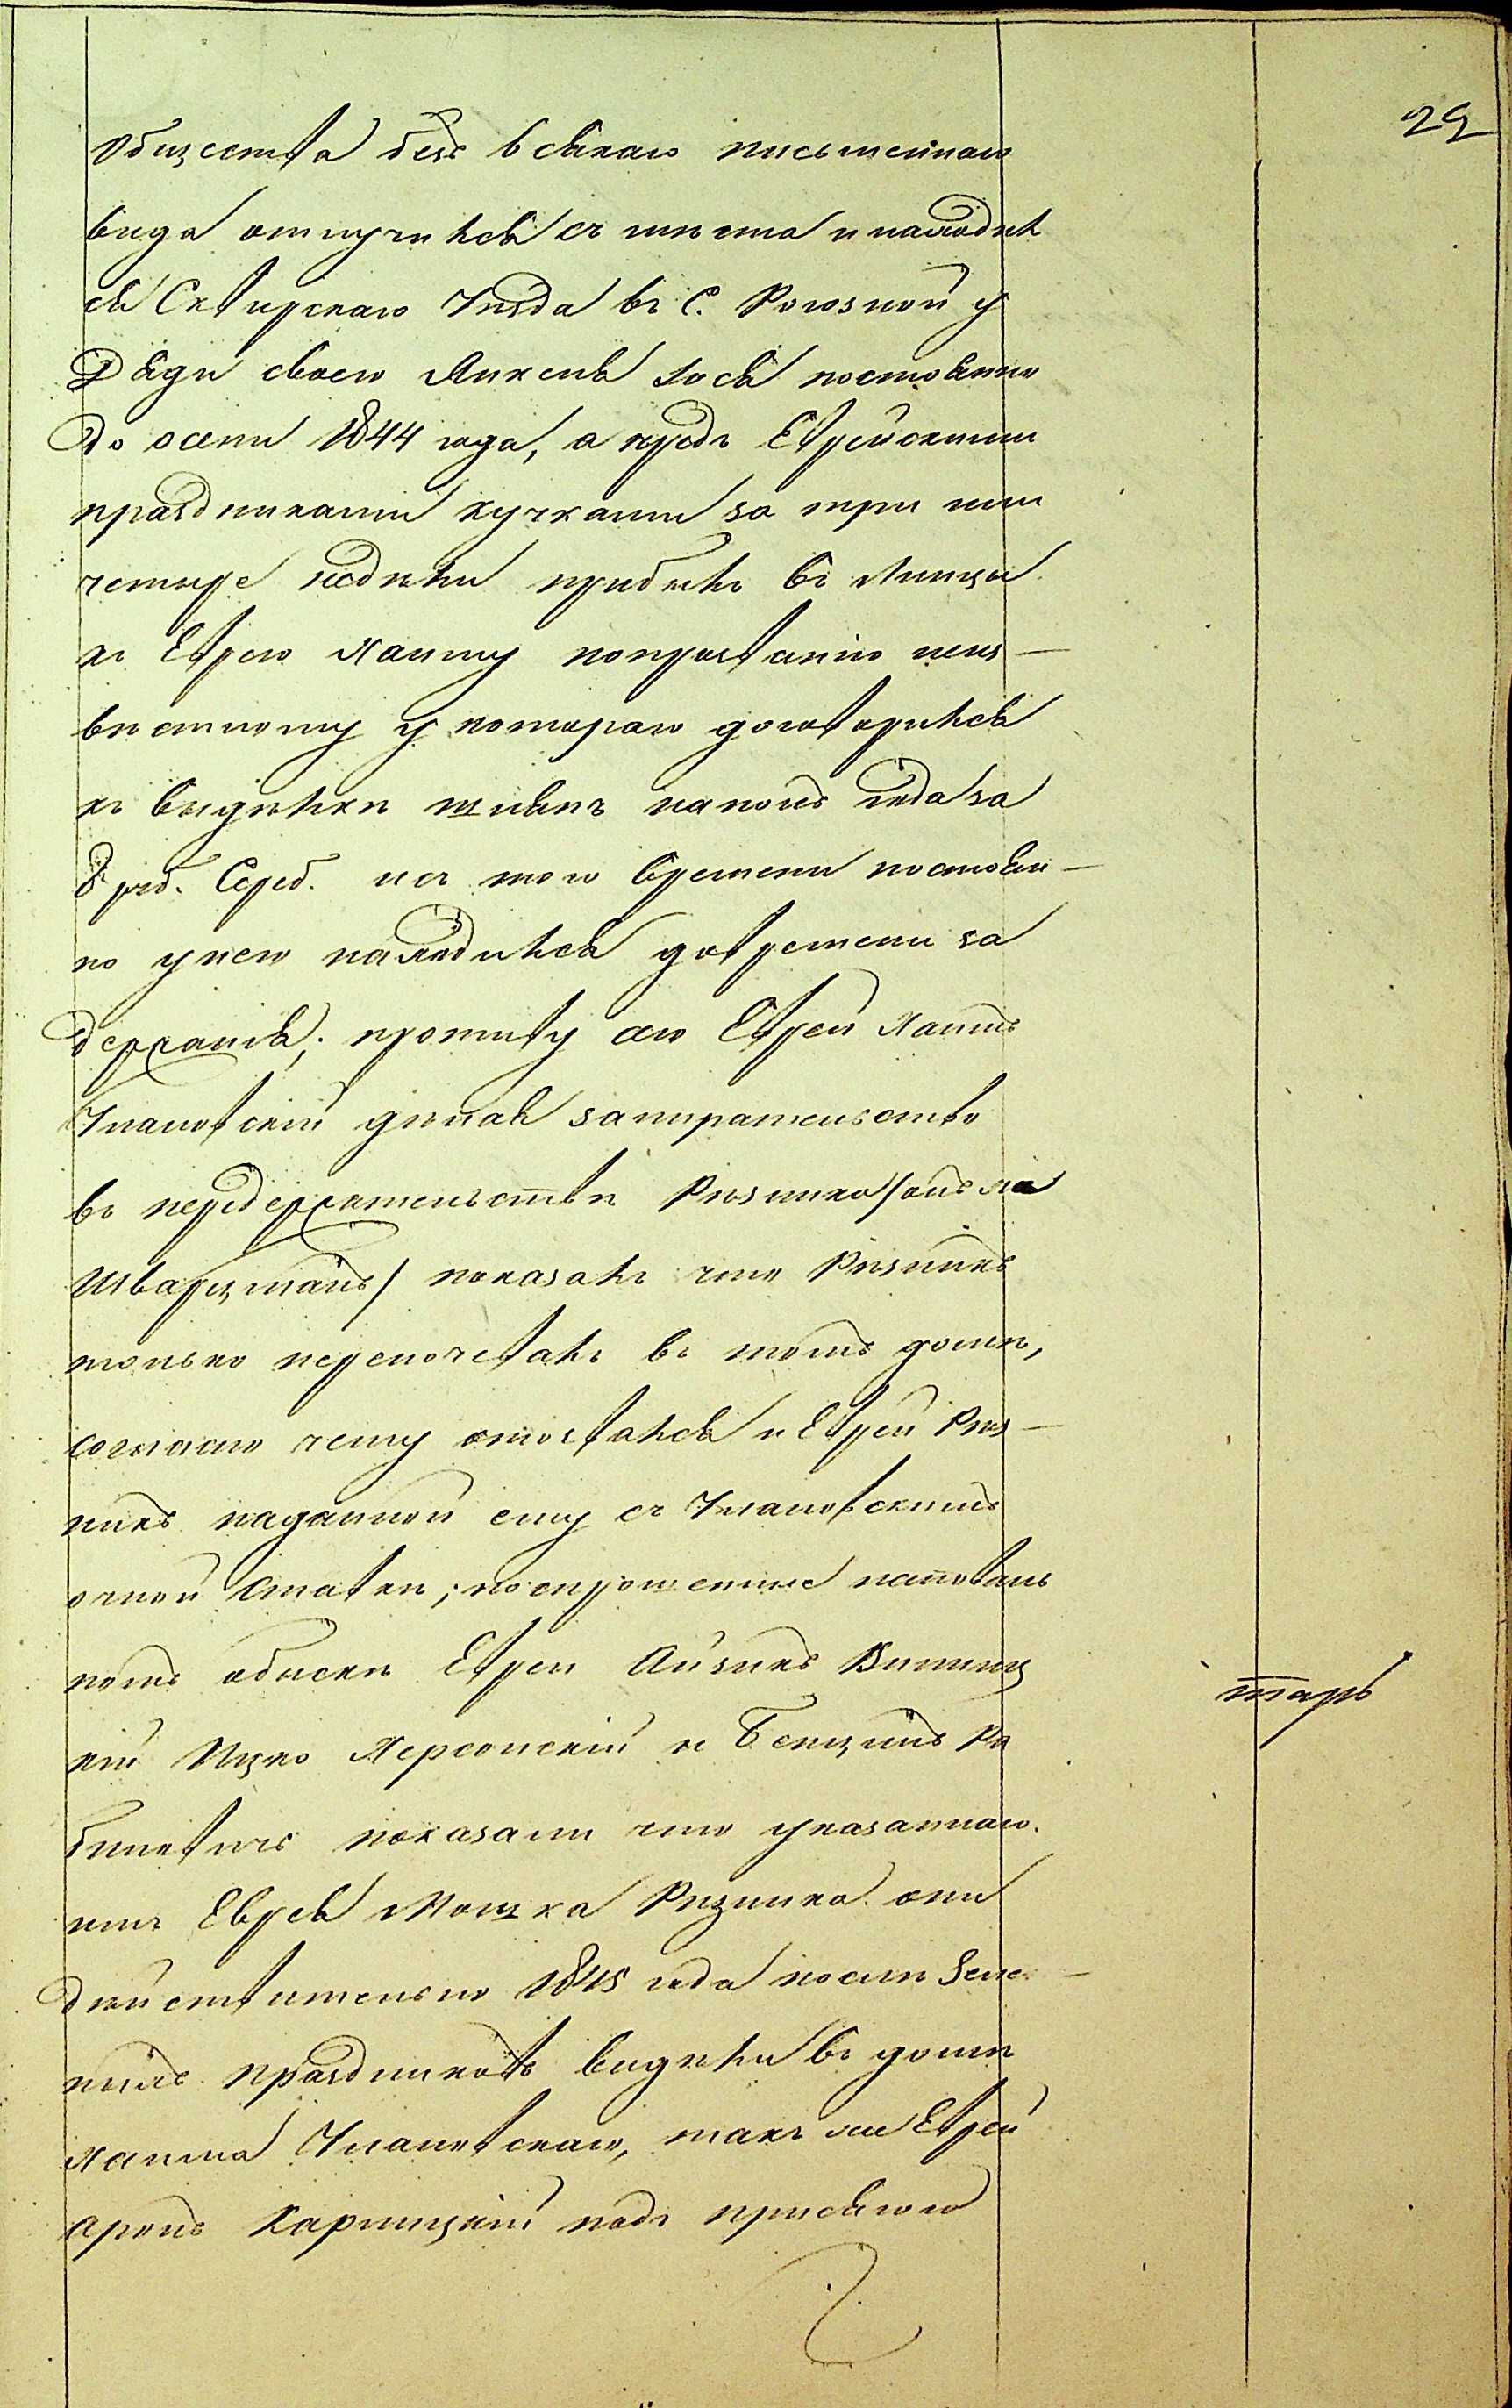 29
Общества безъ всякаго письменнаго
вида отлучился съ мѣста и находил
ся Сквирскаго Уѣзда въ С. Рогозной у
Дяди своего Янкеля Лося постоянно
до осени 1844 года, а предъ Еврейскими
праздниками кучками за три или
четыре недѣли прибылъ въ Липцы
къ Еврею Хаиму попрозванію неиз-
вѣстному у котораго договорился
къ выдѣлки шляпъ наполъ года за
8 руб. Сереб. и съ того времени постоян-
но унего находился довремени за
держанія; противу сего Еврей Хаимъ
Улановскій дѣлая запирательство
въ передержательствѣ Рѣзника /онъ же
Шварцманъ/ показалъ что Рѣзникъ
только переночевалъ въ томъ домѣ,
согласно чему отозвался и Еврей Рѣз-
никъ наданной ему съ Улановскимъ
очной ставки; поспрошенные наповаль
номъ обыскѣ Евреи Айзикъ Винниц
кій Ицко Херсонскій и Бенціонъ Ра
биновичъ показали что указаннаго
имъ Еврея Мошка Рѣзника они
дѣйствительно 1845 года послѣ Зеле-
ныхъ праздниковъ видѣли въ домѣ
Хаима Улановскаго, такъ же Еврей
Аронъ Карпицкій подъ присягою
тарь